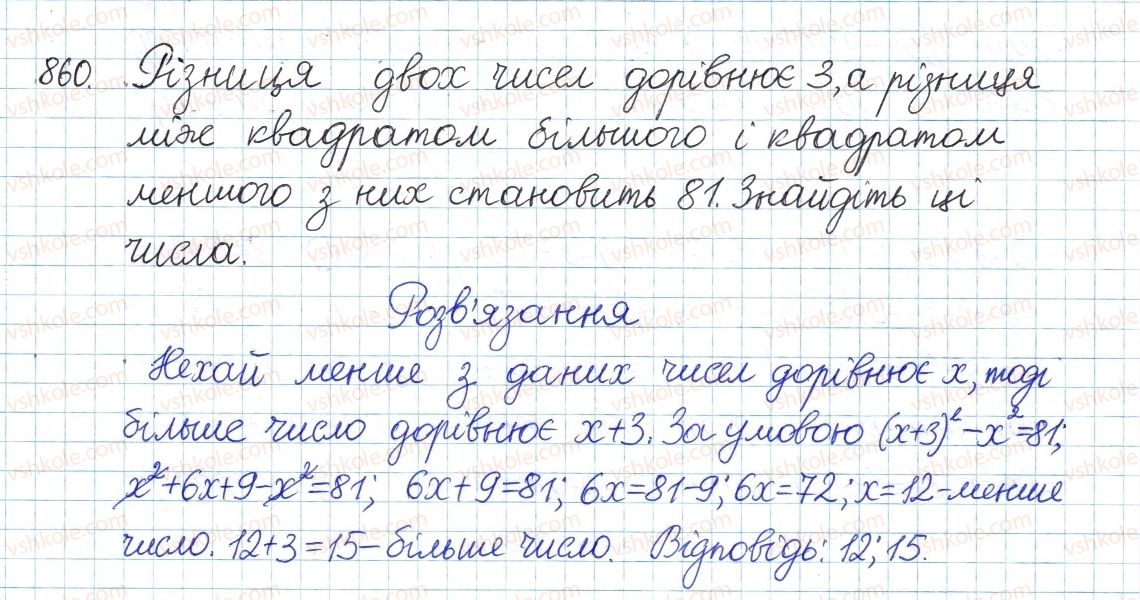 860. Різниця двох чисел дорівнює 3, а різниця
між квадратом більшого і квадратом
меншого з них становить 81. Знайдіть ці
числа.
Розв'язання
Нехай менше з даних чисел дорівнює x, тоді
більше число дорівнює x+3. За умовою (x+3)²-x²=81;
x²+6x+9-x²=81; 6x+9=81; 6x=81-9; 6x=72; x=12-менше
число. 12+3=15-більше число. Відповідь: 12; 15.